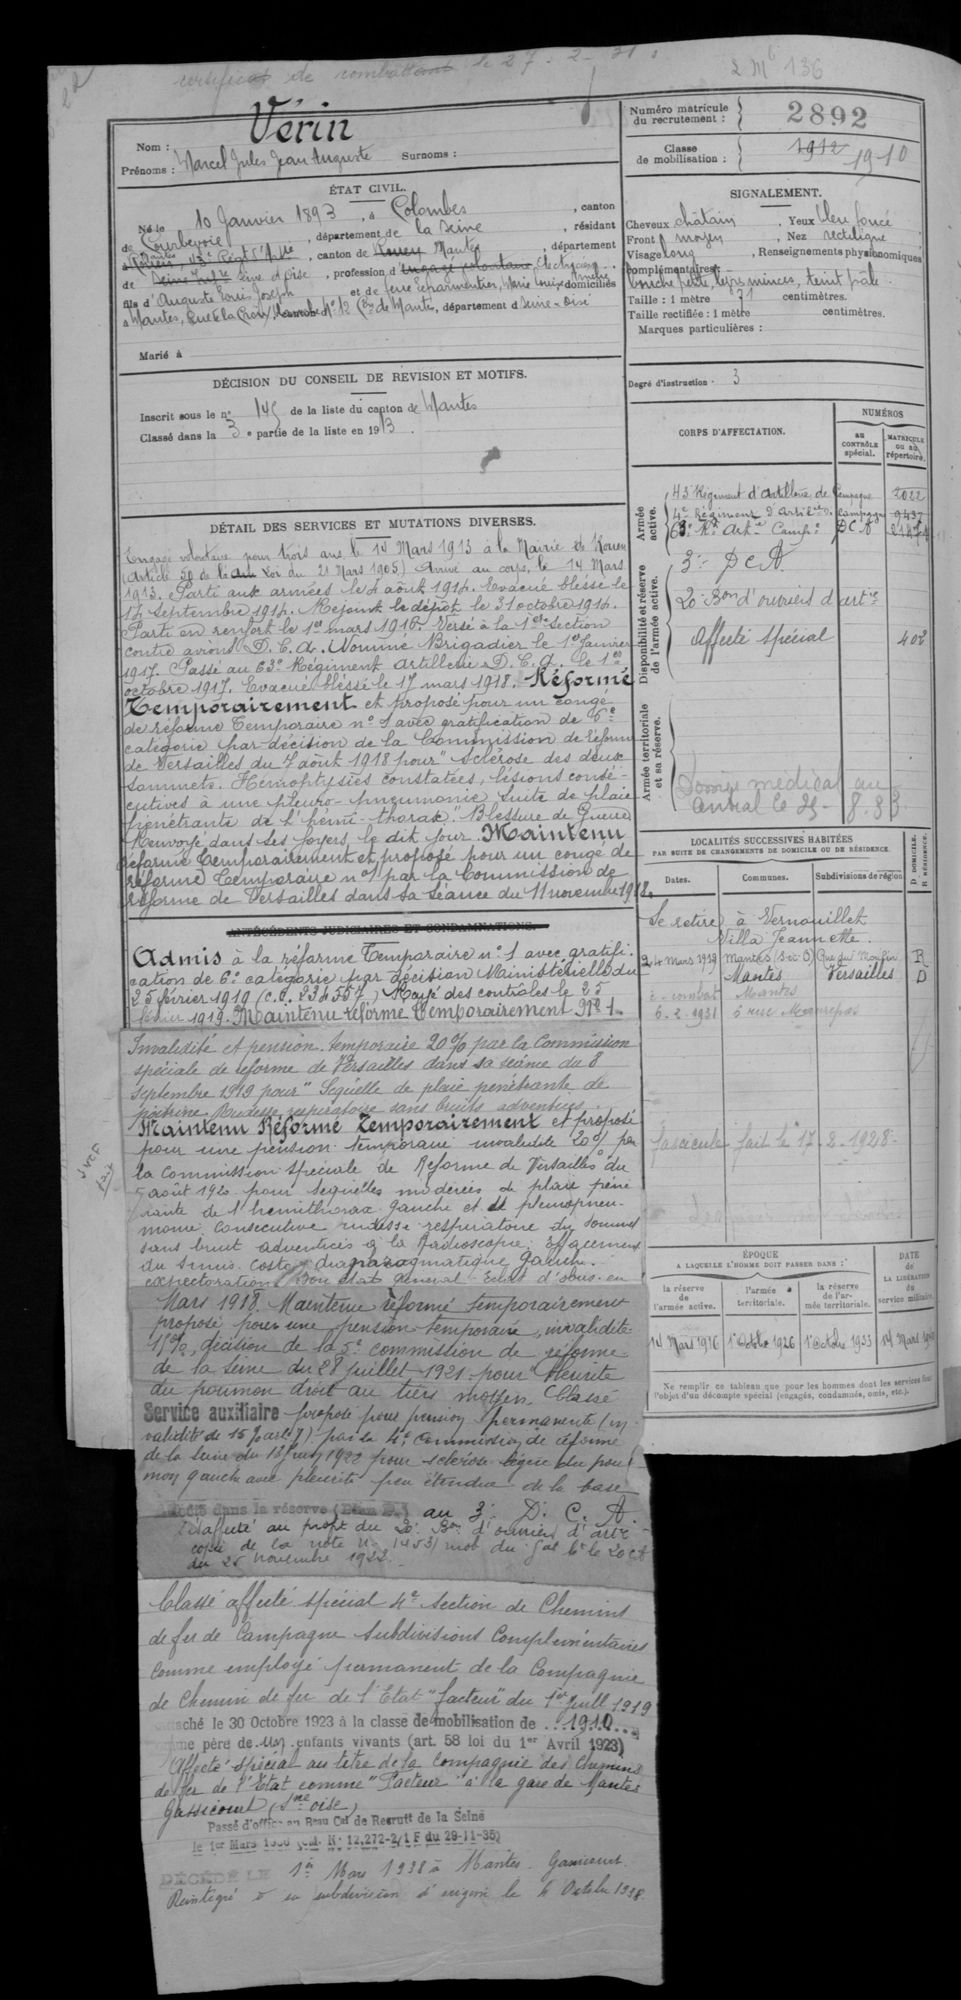 certificat de combattant le 27-2-31
2 Mi 136
Nom : Vérin
Prénoms : Marcel Jules Jean Auguste Surnoms :
Numéro matricule du recrutement : 2892
Classe de mobilisation : 1912 1910
ÉTAT CIVIL.
Né le 10 Janvier 1893, à Colombes, canton
de Courbevoie, département de la Seine, résidant
à Rouen, 43e Régt d'Artie, canton de Rouen Mantes, département
de Seine Infre Seine et Oise, profession d'engagé volontaire, électricien
fils d'Auguste Louis Joseph et de Marie Louise domiciliés
à Mantes, Rue de la Croix, canton de Mantes, département d Seine-Oise
Marié à
SIGNALEMENT.
Cheveux châtain, Yeux bleu foncé
Front moyen, Nez rectiligne
Visage long, Renseignements physionomiques
complémentaires :
bouche petite, lèvres minces, teint pâle
Taille : 1 mètre 71 centimètres.
Taille rectifiée : 1 mètre centimètres.
Marques particulières :
Degré d'instruction : 3
DÉCISION DU CONSEIL DE RÉVISION ET MOTIFS.
Inscrit sous le n° 145 de la liste du canton de Mantes
Classé dans la 3e partie de la liste en 1913.
CORPS D'AFFECTATION.
NUMÉROS
AU CONTRÔLE spécial.
MATRICULE OU AU répertoire.
Armée active.
43 Régiment d'Artillerie de Campagne 2022
4e Régiment d'Artilrie de Campagne 9437
63e Rt Artie Campe DCA
Disponibilité et réserve de l'armée active.
3e D C A
20e Bon d'ouvriers d'artie
Affecté spécial 402
Armée territoriale et sa réserve.
DÉTAIL DES SERVICES ET MUTATIONS DIVERSES.
Engagé volontaire pour trois ans le 14 Mars 1913 à la Mairie de Rouen
(Article 50 de la Loi du 21 Mars 1905) Arrivé au corps, le 14 Mars
1913. Parti aux armées le 4 août 1914. Evacué blessé le
14 septembre 1914. Rejoint le dépôt le 31 octobre 1914.
Parti en renfort le 1er mars 1916. Versé à la 1ère section
contre avions D.C.A. Nommé Brigadier le 1er Janvier
1917. Passé au 63e Régiment artillerie D.C.A. le 1er
octobre 1917. Evacué blessé le 17 mars 1918. Réformé
Temporairement et proposé pour un congé
de réforme Temporaire n° 1 avec gratification de 6e
catégorie par décision de la Commission de réforme
de Versailles du 7 août 1918 pour "Sclérose des deux
sommets. Hémoptysies constatées, lésions consé-
cutives à une pleuro-pneumonie suite de plaie
pénétrante de l'hémi-thorax. Blessure de guerre
Renvoyé dans ses foyers le dit jour. Maintenu
réformé Temporairement et proposé pour un congé de
réforme Temporaire n° 1 par la Commission de
réforme de Versailles dans sa séance du 11 novembre 1918.
ANTÉCÉDENTS JUDICIAIRES ET CONDAMNATIONS.
Admis à la réforme Temporaire n° 1 avec gratifi-
cation de 6e catégorie par décision Ministérielle du
25 février 1919 (c.o. 234507) Rayé des contrôles le 25
février 1919. Maintenu réformé Temporairement N° 1.
Invalidité et pension temporaire 20% par la Commission
spéciale de réforme de Versailles dans sa séance du 8
septembre 1919 pour "Séquelle de plaie pénétrante de
poitrine. Rudesse respiratoire sans bruits adventices.
Maintenu Réformé Temporairement et proposé
pour une pension temporaire invalidité 20% par
la Commission spéciale de Réforme de Versailles du
5 août 1920 pour séquelles modérées de plaie péné-
trante de l'hémithorax gauche et de pleuropneu-
monie consécutive rudesse respiratoire du sommet
sans bruit adventices à la Radioscopie. Effacement
du sinus costo diaphragmatique gauche.
expectorations Bon état général. Eclat d'obus en
Mars 1918. Maintenu réformé temporairement
proposé pour une pension temporaire, invalidité
15%, décision de la 5e commission de réforme
de la Seine du 28 juillet 1921 pour "Pleurite
du poumon droit au tiers moyen. Classé
Service auxiliaire proposé pour pension permanente (in-
validité de 15%) par la 4e commission de réforme
de la Seine du 13 Juin 1922 pour sclérose légère du pou-
mon gauche avec pleurite peu étendue de la base
Affecté dans la réserve (Plan D.) au 3e D.C.A.
Désaffecté au profit du 20e Bon d'ouvriers d'artie
copie de la note n°
du 25 novembre 1922.
Classé affecté spécial 4e section de Chemins
de fer de Campagne subdivisions Complémentaires
comme employé permanent de la Compagnie
de Chemin de fer de l'Etat "facteur" du 1er Juill 1919
le 30 Octobre 1923 à la classe de mobilisation de ...1910...
comme père de un enfants vivants (art. 58 loi du 1er Avril 1923)
Affecté spécial au titre de la Compagnie des Chemins
de fer de l'Etat comme "Facteur" à la gare de Mantes
Gassicourt (Sne Oise)
Passé d'office au Beau Cal de Recrutt de la Seine
le 1er Mars (Cir. N° 12.272-2/1 F du 29-11-35)
DÉCÉDÉ LE 1er Mars 1938 à Mantes Gassicourt
Réintégré à sa subdivision d'origine le 4 Octobre 1938.
LOCALITÉS SUCCESSIVES HABITÉES
PAR SUITE DE CHANGEMENTS DE DOMICILE OU DE RÉSIDENCE.
D DOMICILE. R RÉSIDENCE.
Dates. Communes. Subdivisions de région
Se retire à Vernouillet
Villa Jeannette.
24 Mars 1919 Mantes (S et O) Rue du Moulin R
Mantes Versailles D
c. combat Mantes
6.2.1931 5 rue
fascicule fait le 17-2-1928-
ÉPOQUE
A LAQUELLE L'HOMME DOIT PASSER DANS :
DATE DE LA LIBÉRATION du service militaire.
la réserve de l'armée active.
l'armée territoriale.
la réserve de l'armée territoriale.
14 Mars 1916 1er Octobre 1926 1er Octobre 1933
Ne remplir ce tableau que pour les hommes dont les services font
l'objet d'un décompte spécial (engagés, condamnés, omis, etc.).